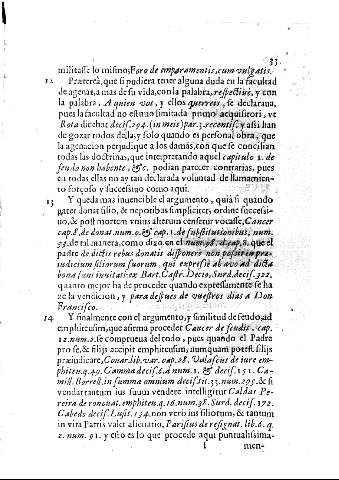 33
militasse lo mismo; Foro de emparamentis, cum vulgatis.
12 Præterea, que si pudiera tener alguna duda en la facultad
de agenar, a mas de su vida, con la palabra, respectivè, y con
la palabra, A quien vos, y ellos querreis, se declaraua,
pues la facultad no estuuo limitada primo acquisitori, vt
Rota dicebat decis. 294. (in meis) par. 3. recentis. y assi han
de gozar todos della, y solo quando es personal obra, que
la agenacion perjudique a los damàs, con que se concilian
todas las doctrinas, que interpretando aquel capitulo 1. de
feudo non habente, &c. podian parecer contrarias, pues
en todas ellas no ay tan declarada voluntad de llamamien-
to forçoso y successiuo como aqui.
13 Y queda mas inuencible el argumento, quia si quando
pater donat filio, & nepotibus simpliciter, ordine successi-
uo, & post mortem vnius alterum censetur vocasse, Cancer
cap. 8. de donat. num. 9. & cap. 1. de substitutionibus, num.
33. de tal manera, como dixo en el num. 98. d. cap. 8. que el
pastre de dictis rebus donatis disponere non possit in præ-
iudicium filiorum suorum, qui expressè ab auo ad dicta
bona sunt inuitati: ex Bart. Castr. Decio, Surd. decis. 322.
quanto mejor ha de proceder quando expressamente se ha-
ze la vendicion, y para despues de vuestros dias a Don
Francisco.
14 Y finalmente con el argumento, y similitud de feudo, ad
emphiteusim, que afirma proceder Cancer de feudis, cap.
12. num. 2. se comprueua del todo, pues quando el Padre
pro se, & filijs accipit emphiteusim, nunquam potest filijs
præiudicare, Couar. lib. var. cap. 28. Valascus de iure emp-
hit. q. 49. Gamma decis. 6. d num. 1. & decis. 151. Ca-
mill. Borrell. in summa omnium decis. tit. 33. num. 295. & si
vendat tantum ius suum vendere intelligitur Caldas Pe-
reira de renouat. emphiteu. q. 16. num. 38. Surd. decis. 172.
Cabedo decis. Lusit. 134. non verò ius filiorum, & tantum
in vita Patris valet alienatio, Parisius de resignat. lib. 6. q.
2. num. 91. y esto es lo que procede aqui puntualissima-
I men-